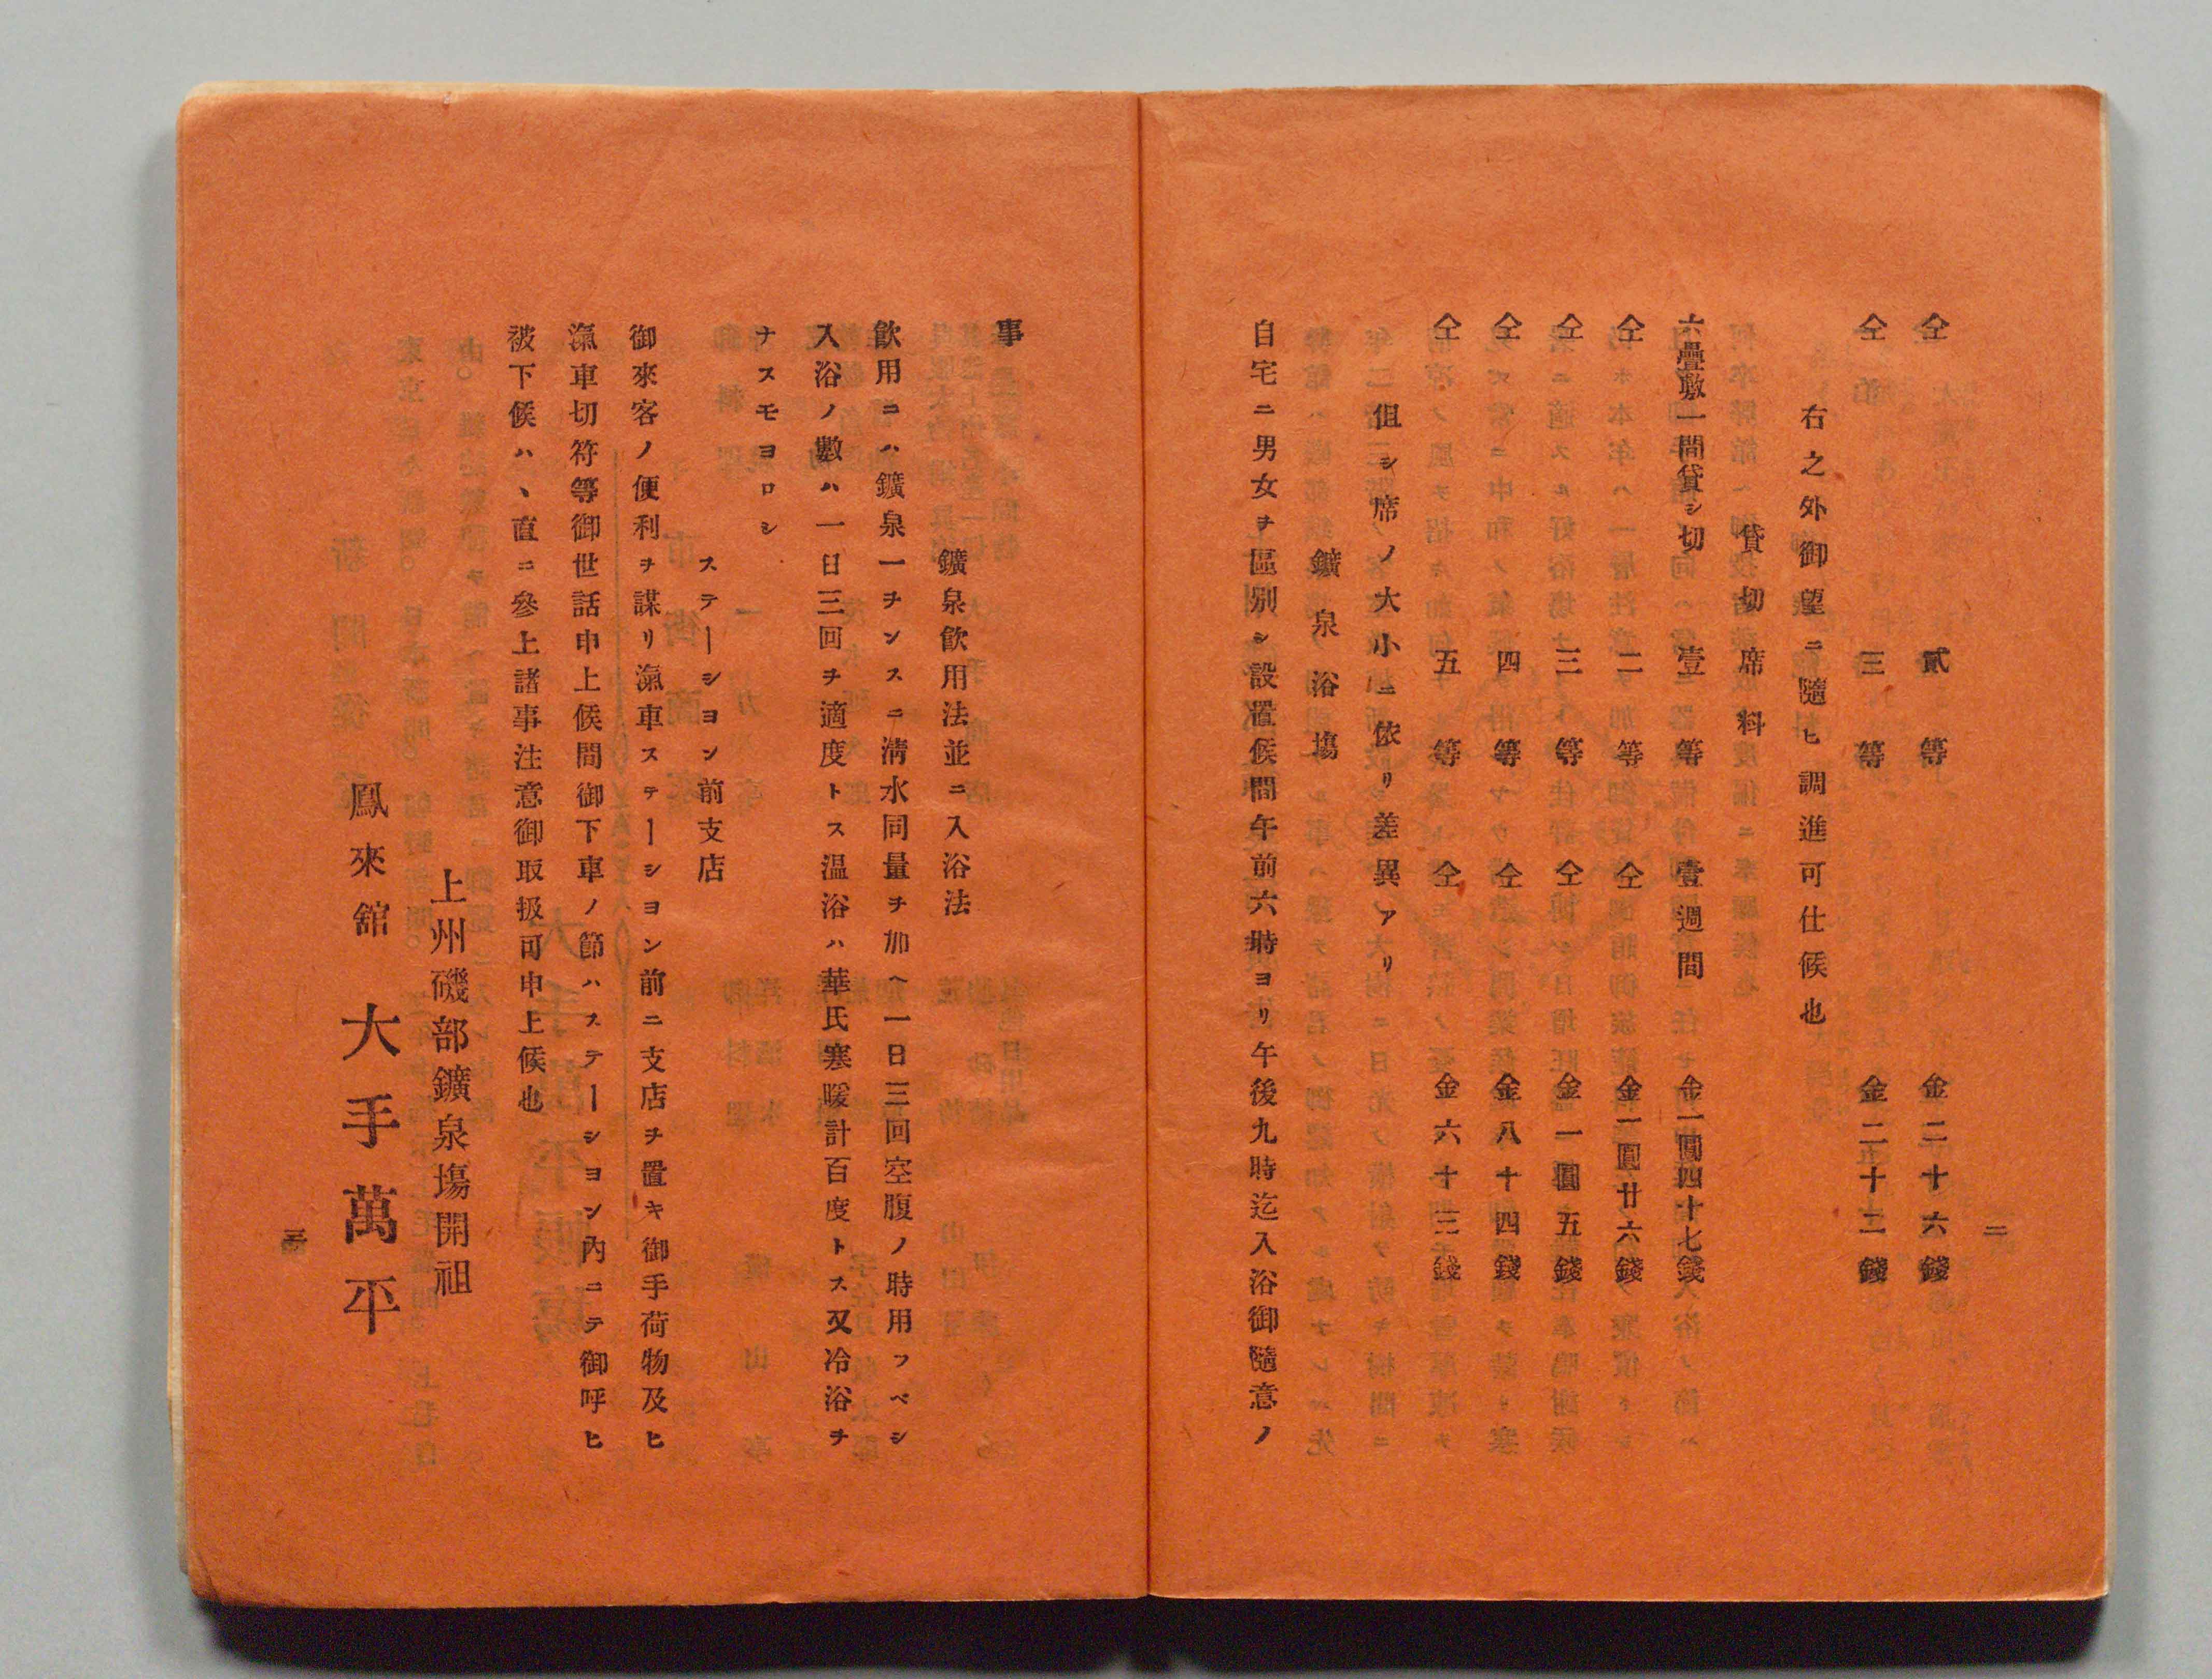 二
仝　貳等　金二十六錢
仝　三等　金二十二錢
右之外御望ニ隨ヒ調進可仕候也
貸切席料
六疊敷一間貸シ切　壹等　壹週間　金一圓四十七錢
仝　二等　仝　金一圓廿六錢
仝　三等　仝　金一圓五錢
仝　四等　仝　金八十四錢
仝　五等　仝　金六十三錢
但シ席ノ大小ニ依リ差異アリ
鑛泉浴塲
自宅ニ男女ヲ區別シ設置候間午前六時ヨリ午後九時迄入浴御隨意ノ
事
鑛泉飮用法並ニ入浴法
飮用ニハ鑛泉一ヲンスニ淸水同量ヲ加ヘ一日三回空腹ノ時用フベシ
入浴ノ數ハ一日三回ヲ適度トス温浴ハ華氏寒暖計百度トス又冷浴ヲ
ナスモヨロシ
ステーシヨン前支店
御來客ノ便利ヲ謀リ滊車ステーシヨン前ニ支店ヲ置キ御手荷物及ヒ
滊車切符等御世話申上候間御下車ノ節ハステーシヨン内ニテ御呼ヒ
被下候ハヽ直ニ參上諸事注意御取扱可申上候也
上州磯部鑛泉塲開祖
鳳來舘　大手萬平
三